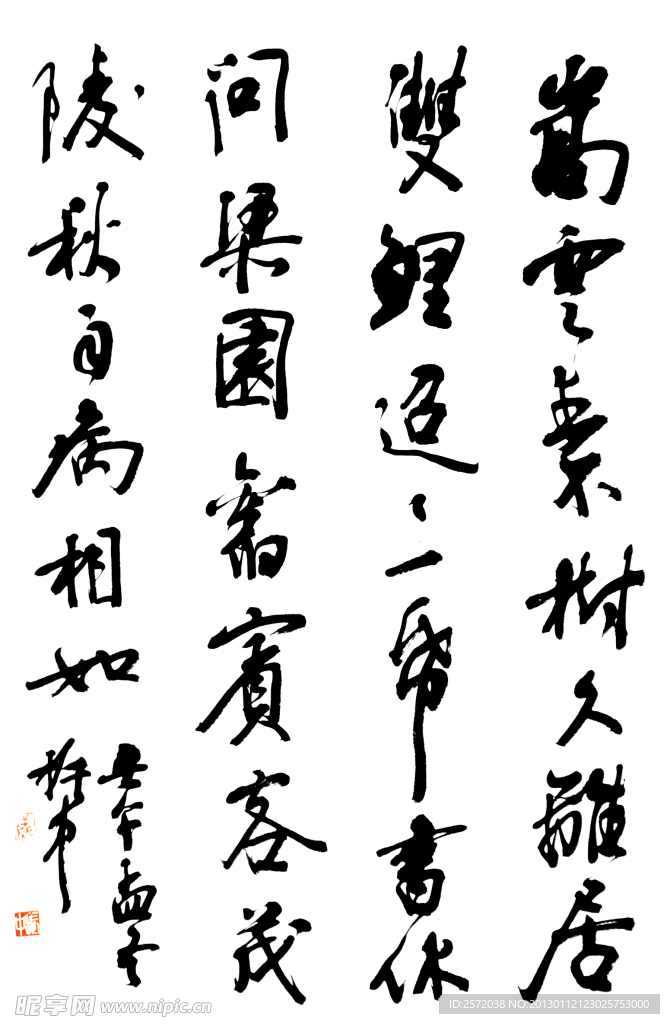 嵩雲秦樹久離居
雙鯉迢〻一帋書休
問梁園舊賓客茂
陵秋雨病相如
壬午孟冬
昵享网 www.nipic.cn
ID:2572038 NO:20130112123025753000